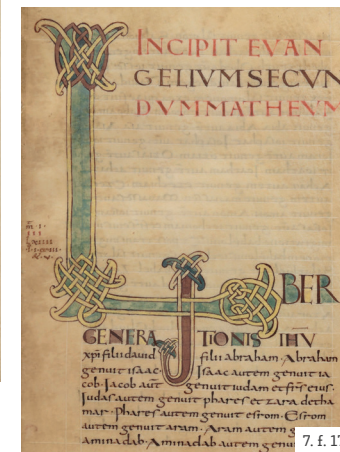 INCIPIT EVAN
GELIVM SECVN
DVM MATHEVM
LIBER
GENERATIONIS IHV
xpi filii dauid filii abraham · Abraham
genuit isaac · Isaac autem genuit ia
cob · Iacob aut genuit iudam et frs eius ·
Iudas autem genuit phares et zara detha
mar · Phares autem genuit esrom · Esrom
autem genuit aram · Aram autem
aminadab · Aminadab autem genui
7. f. 1